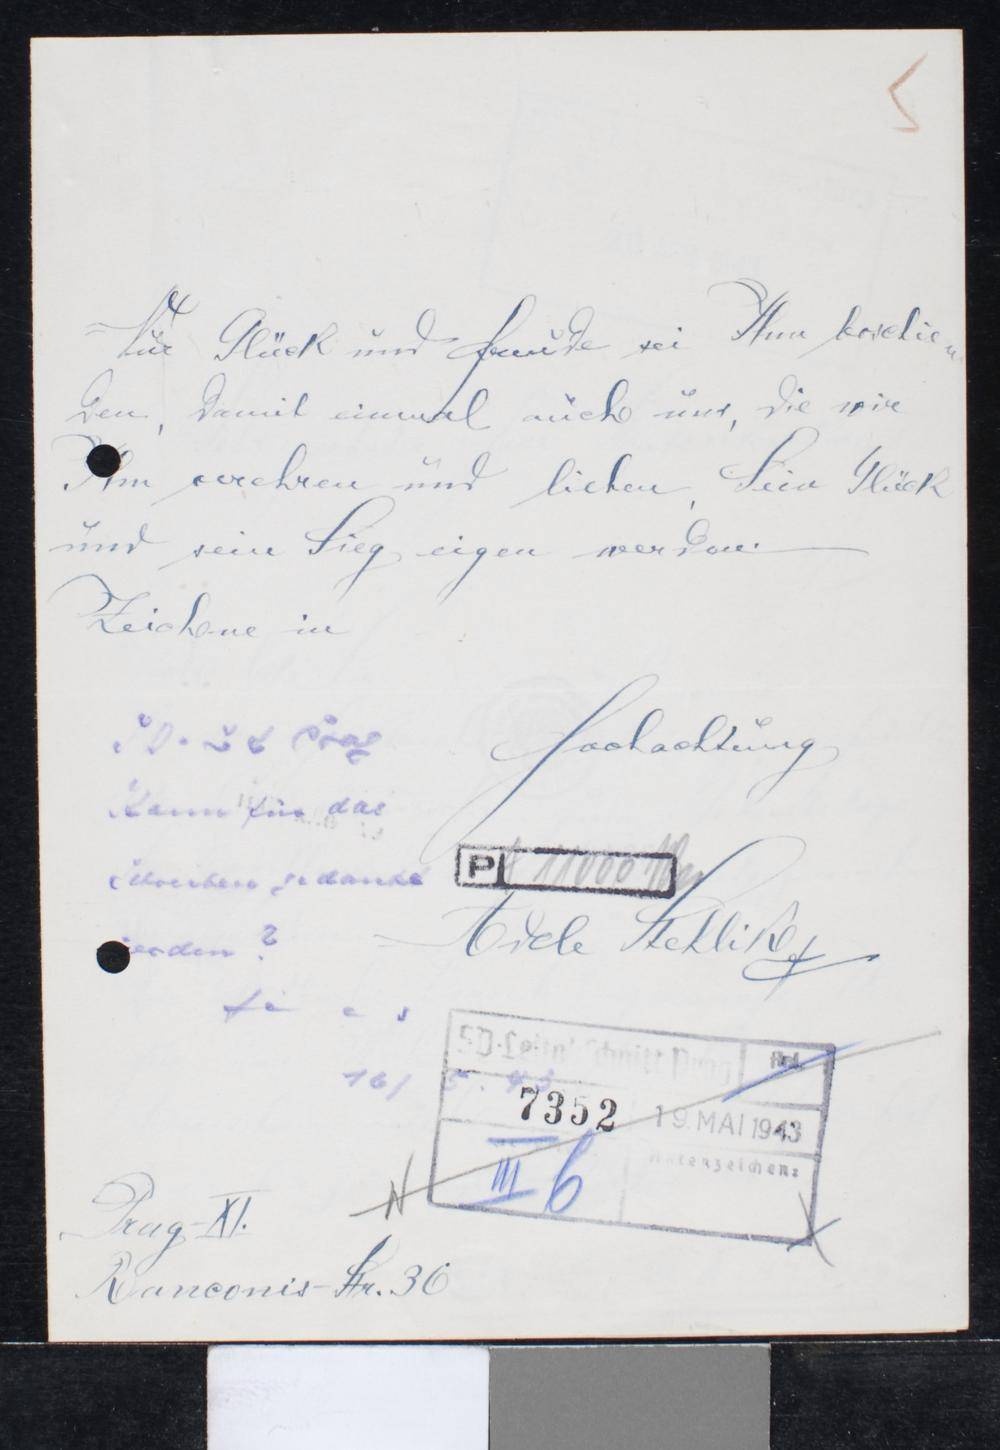 5
Nur Glück und Freude sei Ihm beschie-
den, damit einmal auch uns, die wir
Ihm verehren und lieben, Sein Glück
und sein Sieg eigen werden.
Zeichne in
Hochachtung
SD-LA Prag
Kann für das
Schreiben gedankt
werden?
P 11000
Adele Stehlik
16/5.43
SD-Leitabschnitt Prag
Anl.
7352 19. MAI 1943
Aktenzeichen:
III b
N
Prag-XI.
Ranconis-Str. 36